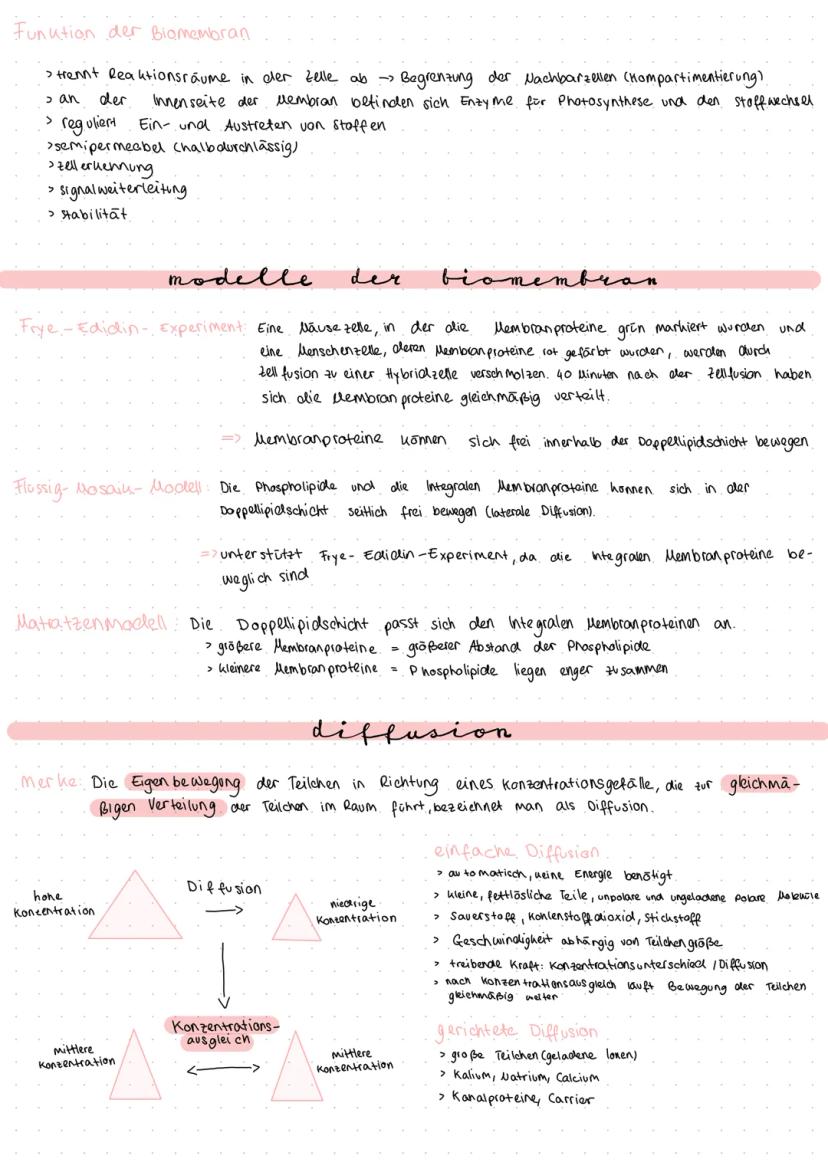 Funktion der Biomembran
> trennt Reaktionsräume in der Zelle ab → Begrenzung der Nachbarzellen (Kompartimentierung)
> an der Innenseite der Membran befinden sich Enzyme für Photosynthese und den Stoffwechsel
> reguliert Ein- und Austreten von Stoffen
> semipermeabel (halbdurchlässig)
> Zellerkennung
> Signalweiterleitung
> Stabilität
modelle der biomembran
Frye-Edidin-Experiment: Eine Mäusezelle, in der die Membranproteine grün markiert wurden und
eine Menschenzelle, deren Membranproteine rot gefärbt wurden, werden durch
Zellfusion zu einer Hybridzelle verschmolzen. 40 Minuten nach der Zellfusion haben
sich die Membranproteine gleichmäßig verteilt.
=> Membranproteine können sich frei innerhalb der Doppellipidschicht bewegen
Flüssig-Mosaik-Modell: Die Phospholipide und die Integralen Membranproteine können sich in der
Doppellipidschicht seitlich frei bewegen (laterale Diffusion).
=> unterstützt Frye-Edidin-Experiment, da die integralen Membranproteine be-
weglich sind
Matratzenmodell: Die Doppellipidschicht passt sich den Integralen Membranproteinen an.
> größere Membranproteine = größerer Abstand der Phospholipide
> kleinere Membranproteine = Phospholipide liegen enger zusammen
diffusion
Merke: Die Eigenbewegung der Teilchen in Richtung eines Konzentrationsgefälle, die zur gleichmä-
ßigen Verteilung der Teilchen im Raum führt, bezeichnet man als Diffusion.
einfache Diffusion
> automatisch, keine Energie benötigt
> kleine, fettlösliche Teile, unpolare und ungeladene polare Moleküle
> Sauerstoff, Kohlenstoffdioxid, Stickstoff
> Geschwindigkeit abhängig von Teilchengröße
> treibende Kraft: Konzentrationsunterschied / Diffusion
> nach Konzentrationsausgleich läuft Bewegung der Teilchen
gleichmäßig weiter
gerichtete Diffusion
> große Teilchen (geladene Ionen)
> Kalium, Natrium, Calcium
> Kanalproteine, Carrier
hohe
Konzentration
Diffusion
niedrige
Konzentration
Konzentrations-
ausgleich
mittlere
Konzentration
mittlere
Konzentration